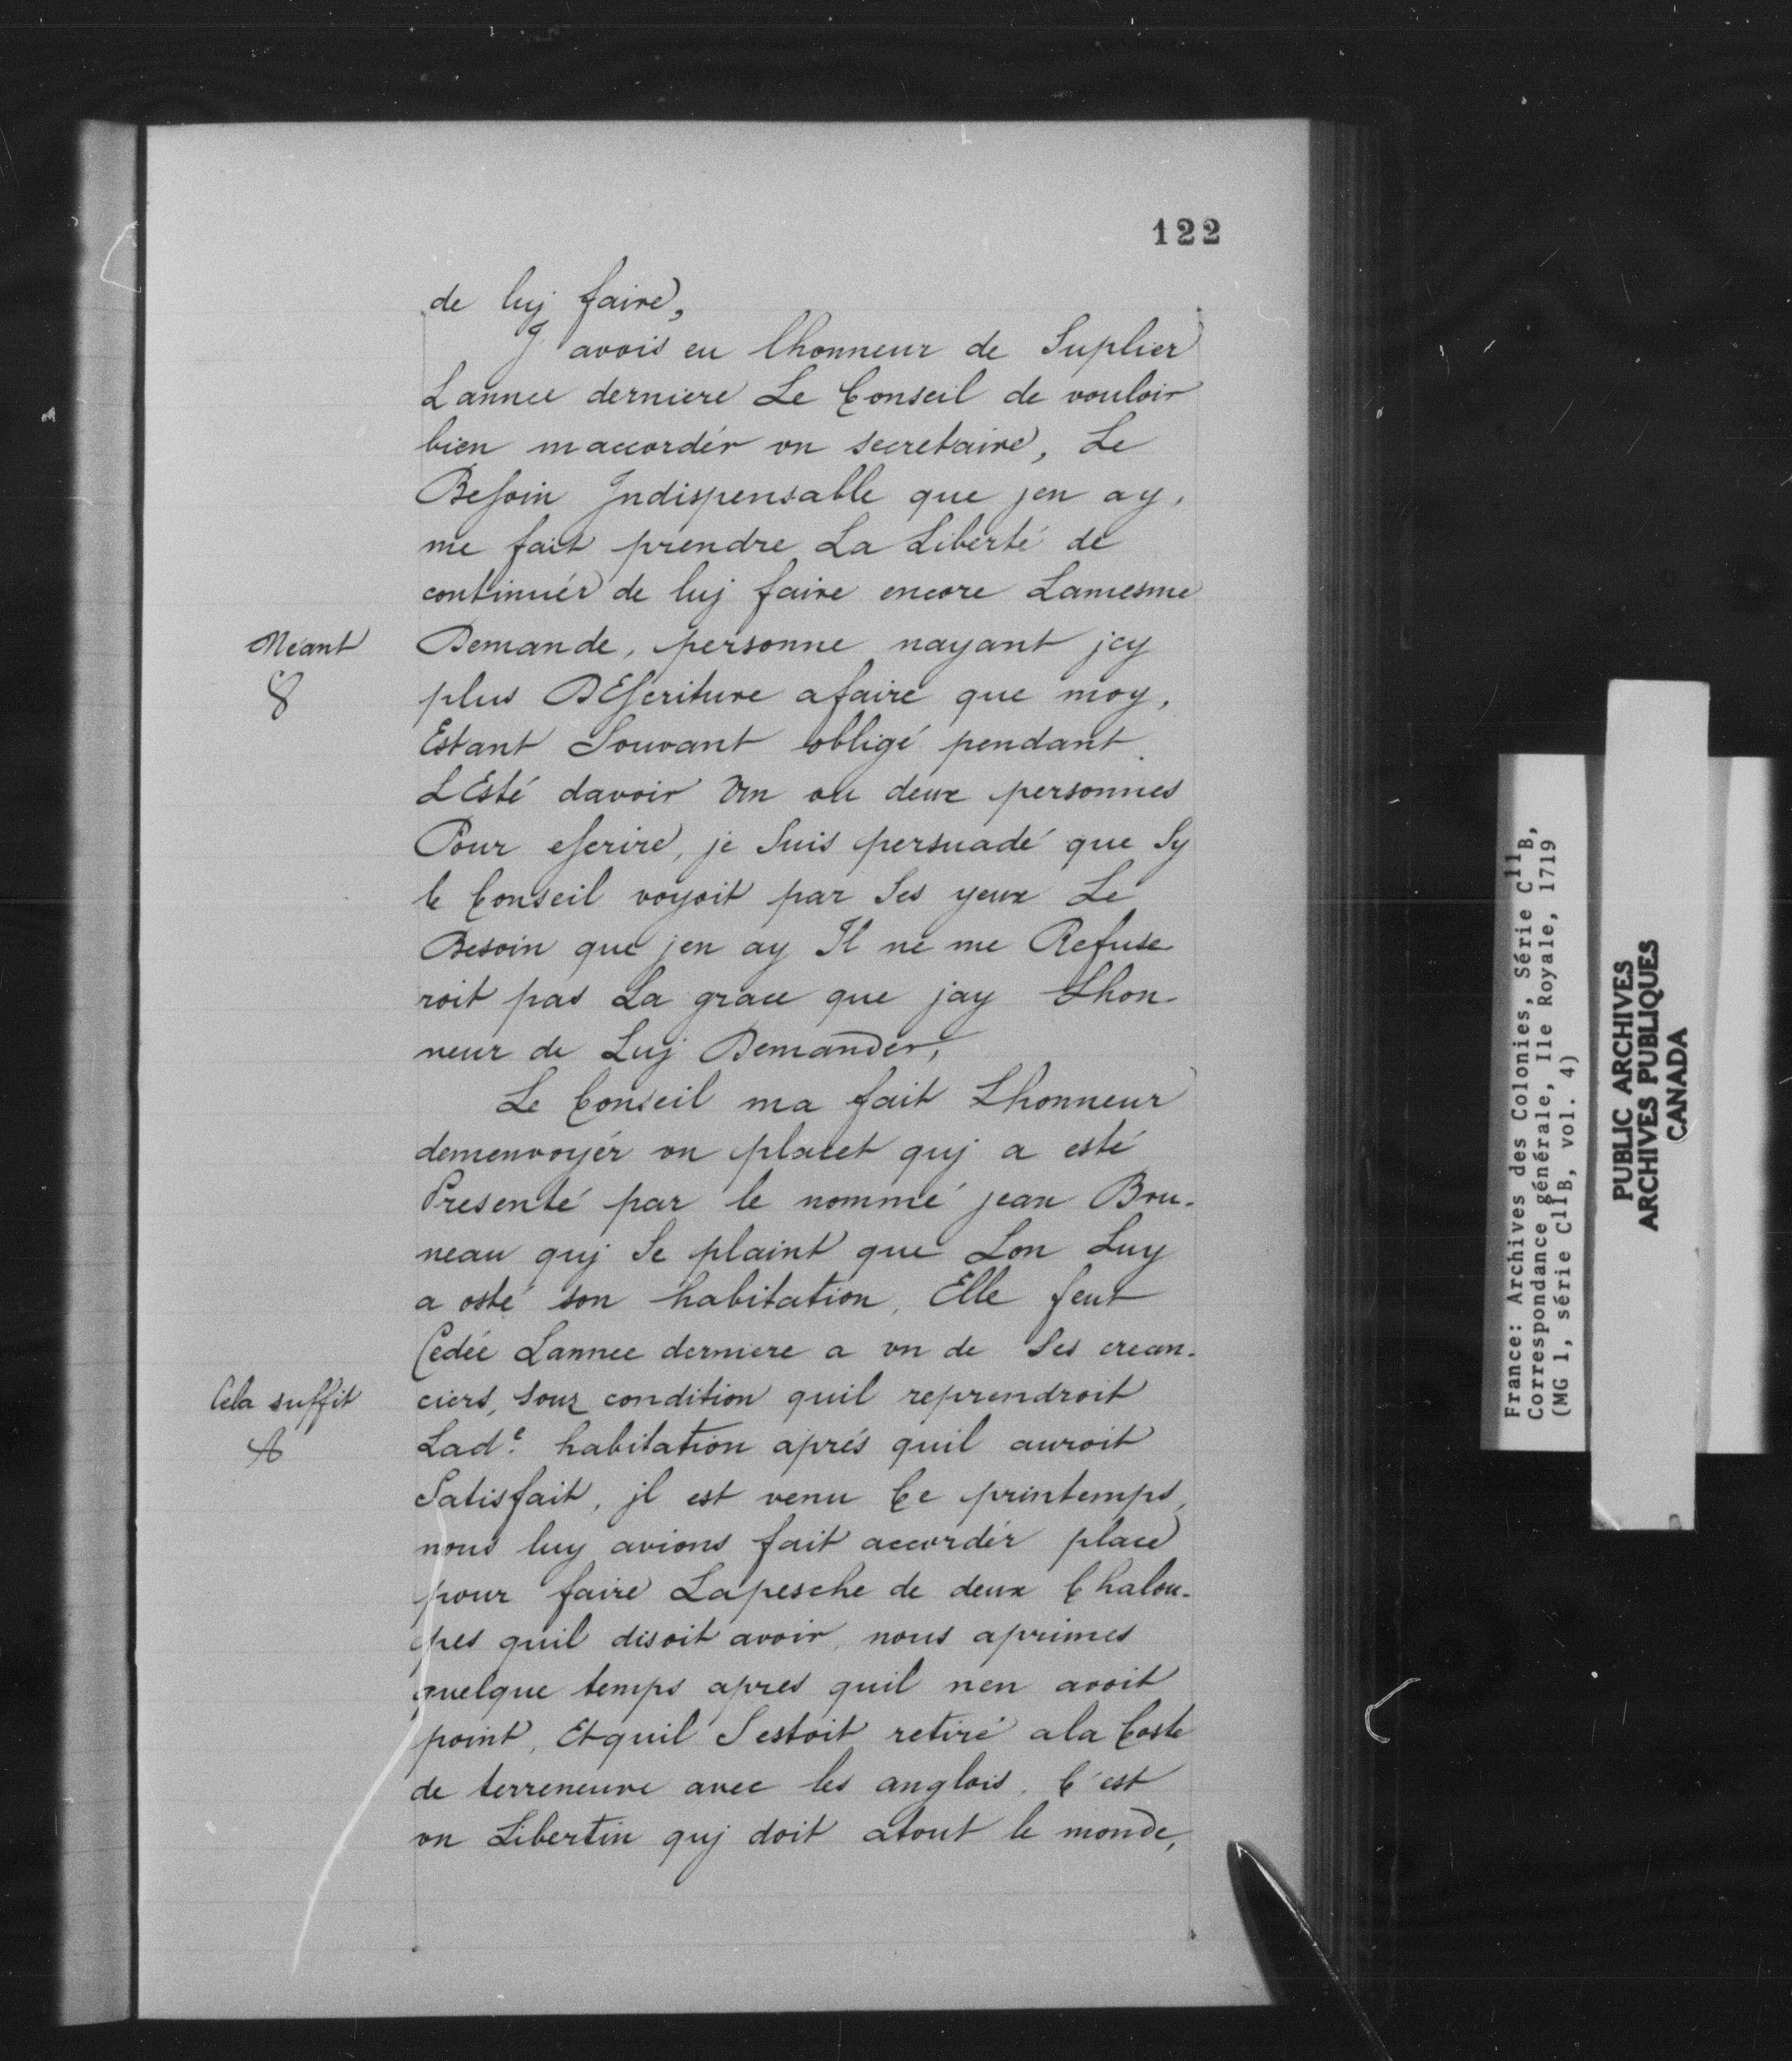 122
de luj faire,
J avois eu lhonneur de Suplier
Lannee derniere Le Conseil de vouloir
bien maccordér vn secretaire, Le
Besoin Indispensable que jen ay,
me fait prendre La Liberté de
continuér de luj faire encore Lamesme
Néant
8
Demande, personne nayant jcy
plus DEscriture afaire que moy,
Estant Souvant obligé pendant
LEsté davoir Vn ou deux personnes
Pour escrire, je Suis persuadé que Sy
le Conseil voyoit par Ses yeux Le
Besoin que jen ay Il ne me Refuse
roit pas La grace que jay Lhon-
neur de Luj Demander,
Le Conseil ma fait Lhonneur
demenvoyér vn placet quj a esté
Presenté par le nommé jean Bru-
neau quj Se plaint que Lon Luy
a osté son habitation, Elle feut
Cedée Lannee derniere a vn de Ses crean-
Cela suffit
A
ciers, Souz condition quil reprendroit
Lad.e habitation aprés quil auroit
Satisfait, jl est venu Ce printemps,
nous luy avions fait accordér place
pour faire Lapesche de deux Chalou-
pes quil disoit avoir, nous aprimes
quelque temps apres quil nen avoit
point, Etquil Sestoit retiré ala Coste
de terreneuve avec les anglois. C'est
vn Libertin quj doit atout le monde,
France: Archives des Colonies, Série C11B,
Correspondance générale, Ile Royale, 1719
(MG 1, série C11B, vol. 4)
PUBLIC ARCHIVES
ARCHIVES PUBLIQUES
CANADA